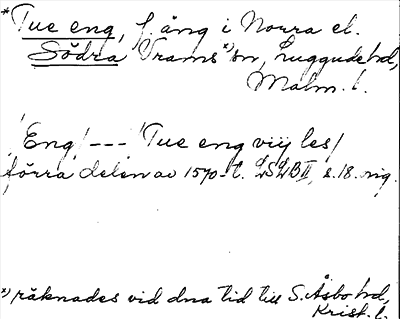 *Tue eng, f. äng i Norra el.
Södra Vrams *) sn, Luggude hd,
Malm. l.
/Eng/ --- /Tue eng viij les/
förra delen av 1570-t. LSLB II, s. 18. orig.
*) räknades vid dna tid till S. Åsbo hd,
Krist. l.